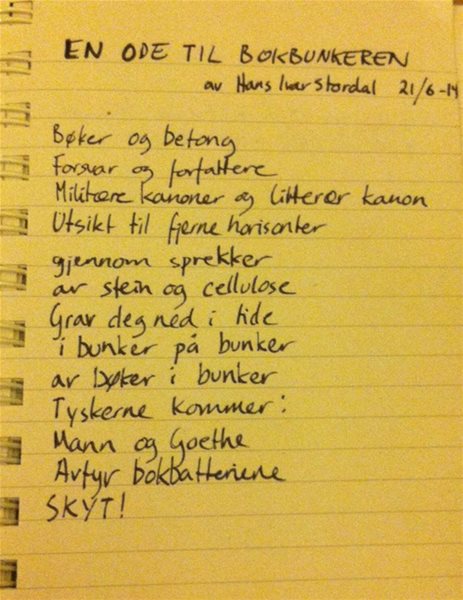 EN ODE TIL BOKBUNKEREN
av Hans Ivar Stordal 21/6-14
Bøker og betong
Forsvar og forfattere
Militære kanoner og litterær kanon
Utsikt til fjerne horisonter
gjennom sprekker
av stein og cellulose
Grav deg ned i tide
i bunker på bunker
av bøker i bunker
Tyskerne kommer:
Mann og Goethe
Avfyr bokbatteriene
SKYT!